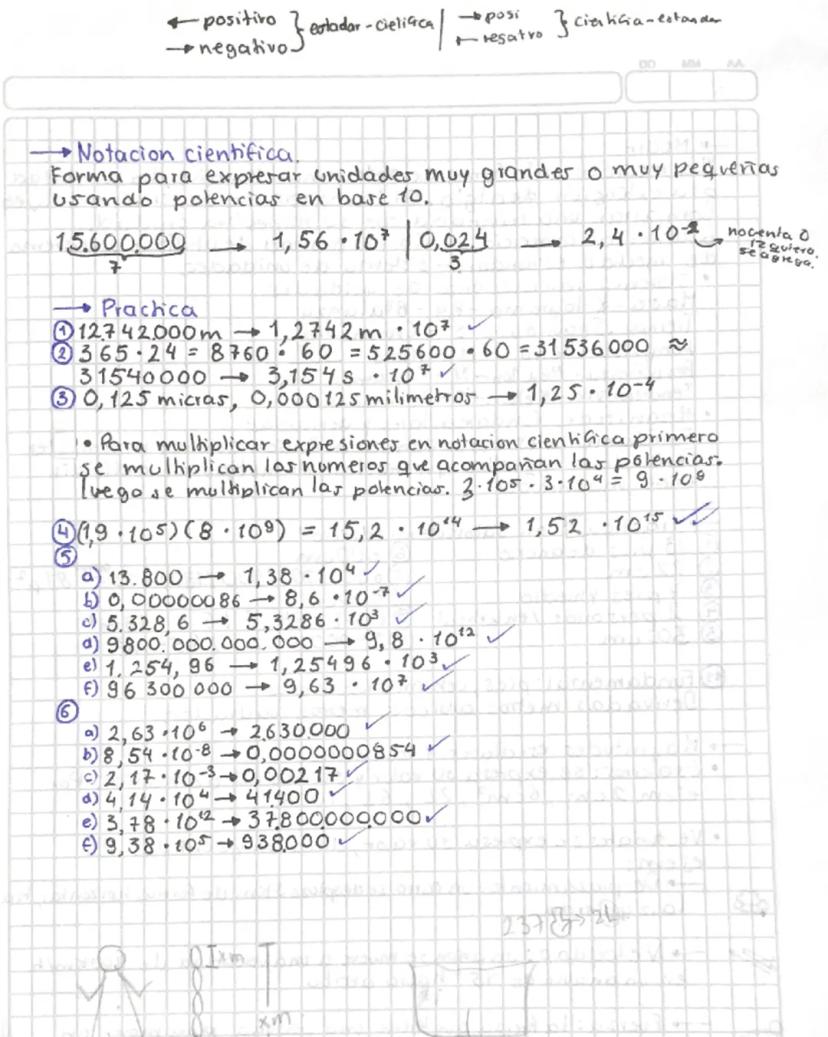 ← positivo } estadar - cielifica | → posi } cientifica - estandar
→ negativo ← negatvo
DD MM AA
→ Notacion cientifica.
Forma para expresar unidades muy grandes o muy pequeñas
usando potencias en base 10.
15.600.000 → 1,56 · 10⁷ | 0,024 → 2,4 · 10⁻² → no cuenta 0
7 3 izquiero.
se agrega.
→ Practica
① 12742000 m → 1,2742 m · 10⁷ ✓
② 365 · 24 = 8760 · 60 = 525600 · 60 = 31536000 ≈
31540000 → 3,154 s · 10⁷ ✓
③ 0,125 micras, 0,000125 milimetros → 1,25 · 10⁻⁴
• Para multiplicar expresiones en notacion cientifica primero
se multiplican los numeros que acompañan las potencias.
luego se multiplican las potencias. 3·10⁵ · 3·10⁴ = 9 · 10⁹
④ (1,9 · 10⁵)(8 · 10⁹) = 15,2 · 10¹⁴ → 1,52 · 10¹⁵ ✓✓
⑤
a) 13.800 → 1,38 · 10⁴ ✓
b) 0,00000086 → 8,6 · 10⁻⁷ ✓
c) 5.328,6 → 5,3286 · 10³ ✓
d) 9800.000.000.000 → 9,8 · 10¹² ✓
e) 1.254,96 → 1,25496 · 10³ ✓
f) 96 300 000 → 9,63 · 10⁷ ✓
⑥
a) 2,63 · 10⁶ → 2.630.000 ✓
b) 8,54 · 10⁻⁸ → 0,0000000854 ✓
c) 2,17 · 10⁻³ → 0,00217 ✓
d) 4,14 · 10⁴ → 41.400 ✓
e) 3,78 · 10¹² → 37.800.000.000 ✓
f) 9,38 · 10⁵ → 938.000 ✓
237
xm
xm